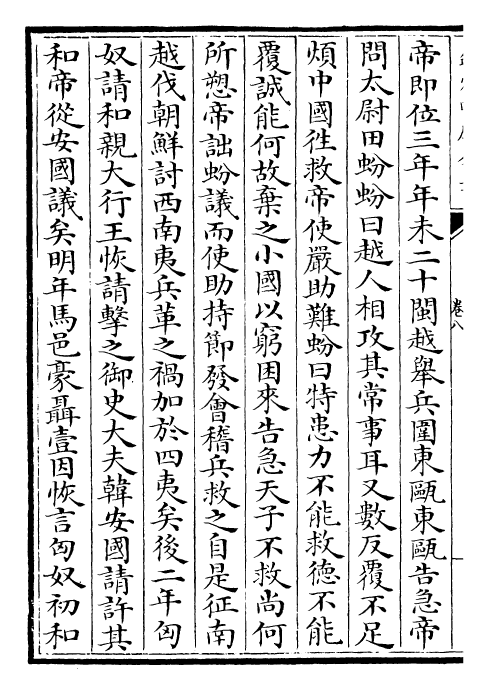 帝即位三年年未二十閩越舉兵圍東甌東甌告急帝
問太尉田蚡蚡曰越人相攻其常事耳又數反覆不足
煩中國徃救帝使嚴助難蚡曰特患力不能救德不能
覆誠能何故棄之小國以窮困來告急天子不救尚何
所愬帝詘蚡議而使助持節發會稽兵救之自是征南
越伐朝鮮討西南夷兵革之禍加於四夷矣後二年匈
奴請和親大行王恢請擊之御史大夫韓安國請許其
和帝從安國議矣明年馬邑豪聶壹因恢言匈奴初和
卷八